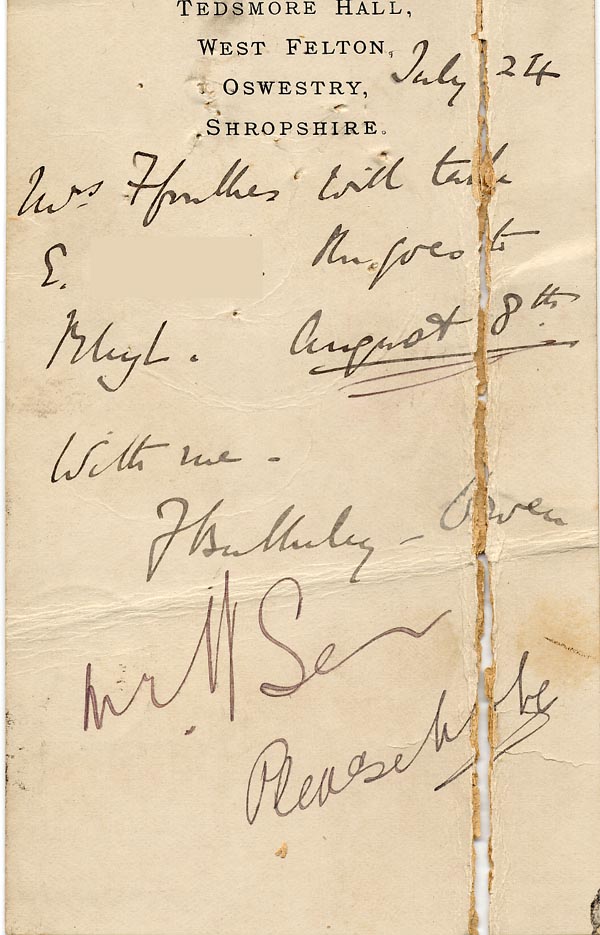 TEDSMORE HALL,
WEST FELTON,
OSWESTRY,
SHROPSHIRE.
July 24
Mrs Ffoulkes will take
E. goes to
Rhyl. August 8th
With me -
F Bulkeley-Owen
Mr
Please